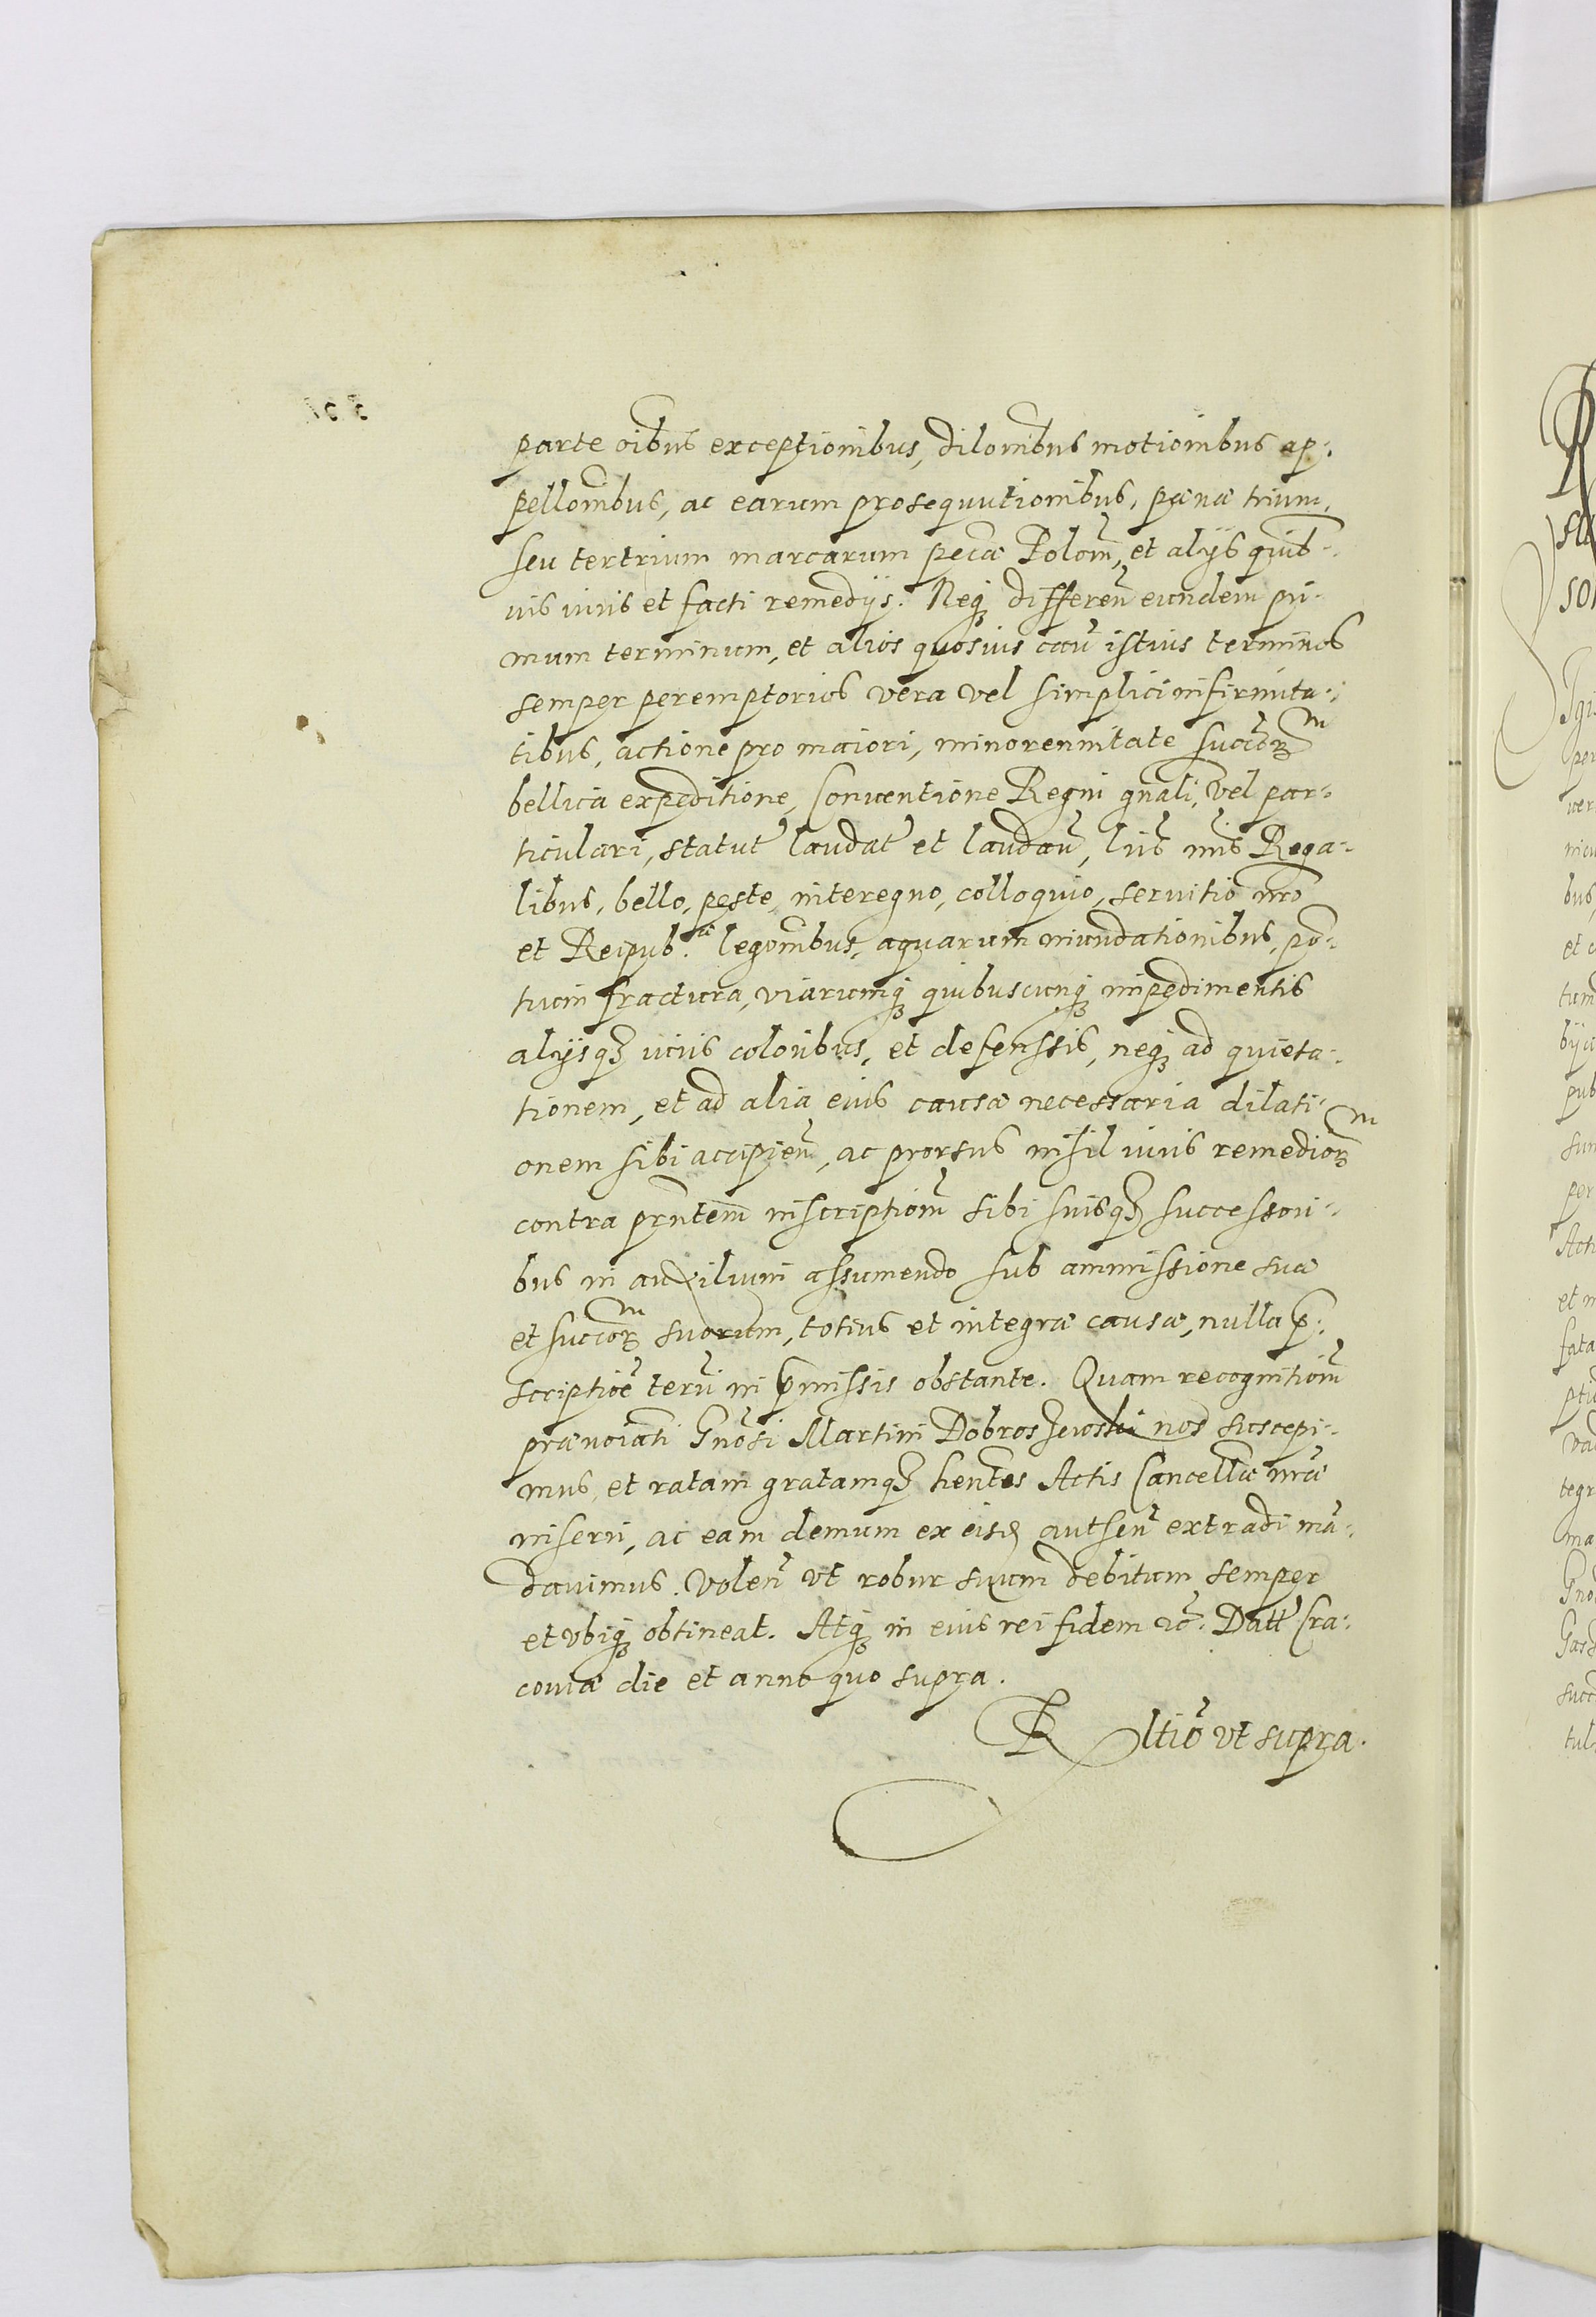 parte oibus exceptionibus, dilonibus motionibus ap:
pellonibus, ac earum prosequutionibus, pæna trium,
seu tertrium marcarum pecæ Polon, et alijs quib-
uis iuris et facti remedijs. Neq differen eundem pri-
mum terminum, et alios quosuis cau istius terminos
semper peremptorios vera vel simplici infirmita-
tibus, actione pro maiori, minorennitate succor
bellica expeditione, Conuentione Regni gnali, vel par-
ticulari, statut laudat et laudan, lris nris Rega-
libus, bello, peste, interegno, colloquio, seruitio nro
et Reipub. legonibus, aquarum inundationibus, po-
tium fractura, viarumq quibuscunq impedimentis
alijsq iuris coloribus, et defenssis, neq ad quieta-
tionem, et ad alia eius causæ necessaria dilati-
onem sibi accipien, ac prorsus nihil iuris remedior
contra prntem inscriptiom sibi suisq successori-
bus in auxilium assumendo sub ammissione suæ
et succor suorum, totius et integræ causæ, nulla p:
scriptioe terri in pmissis obstante. Quam recognitiom
prænoiati Gnosi Martini Dobroszewski nos suscepi-
mus, et ratam gratamq hentes Actis Cancellæ nræ
inseri, ac eam demum ex eisd autsen extradi man-
dauimus. Volen vt robur suum debitum semper
et vbiq obtineat. Atq in eius rei fidem etc. Datt Cra-
couiæ die et anno quo supra.
R ltio vt supra.